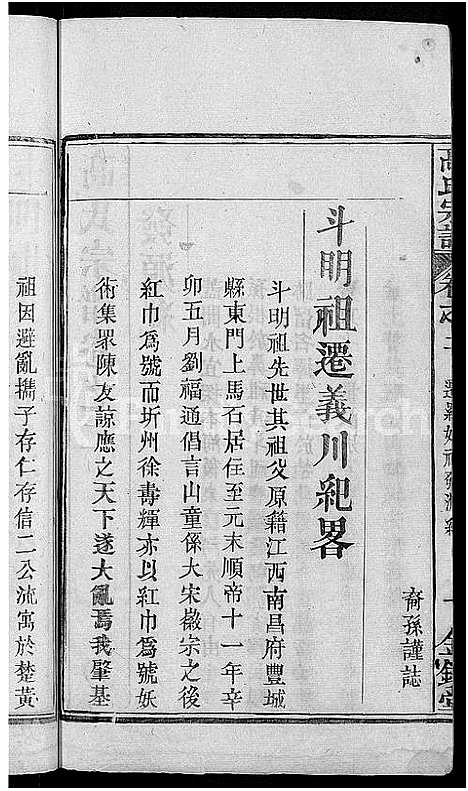 高氏宗譜
卷之二
遷羅始祖發源紀
金鏡堂
裔孫謹誌
斗明祖遷義川紀畧
斗明祖先世其祖父原籍江西南昌府豐城
縣東門上馬石居住至元末順帝十一年辛
卯五月劉福通倡言山童係大宋徽宗之後
紅巾為號而圻州徐壽輝亦以紅巾為號妖
術集眾陳友諒應之天下遂大亂焉我肇基
祖因避亂攜子存仁存信二公流寓於楚黃